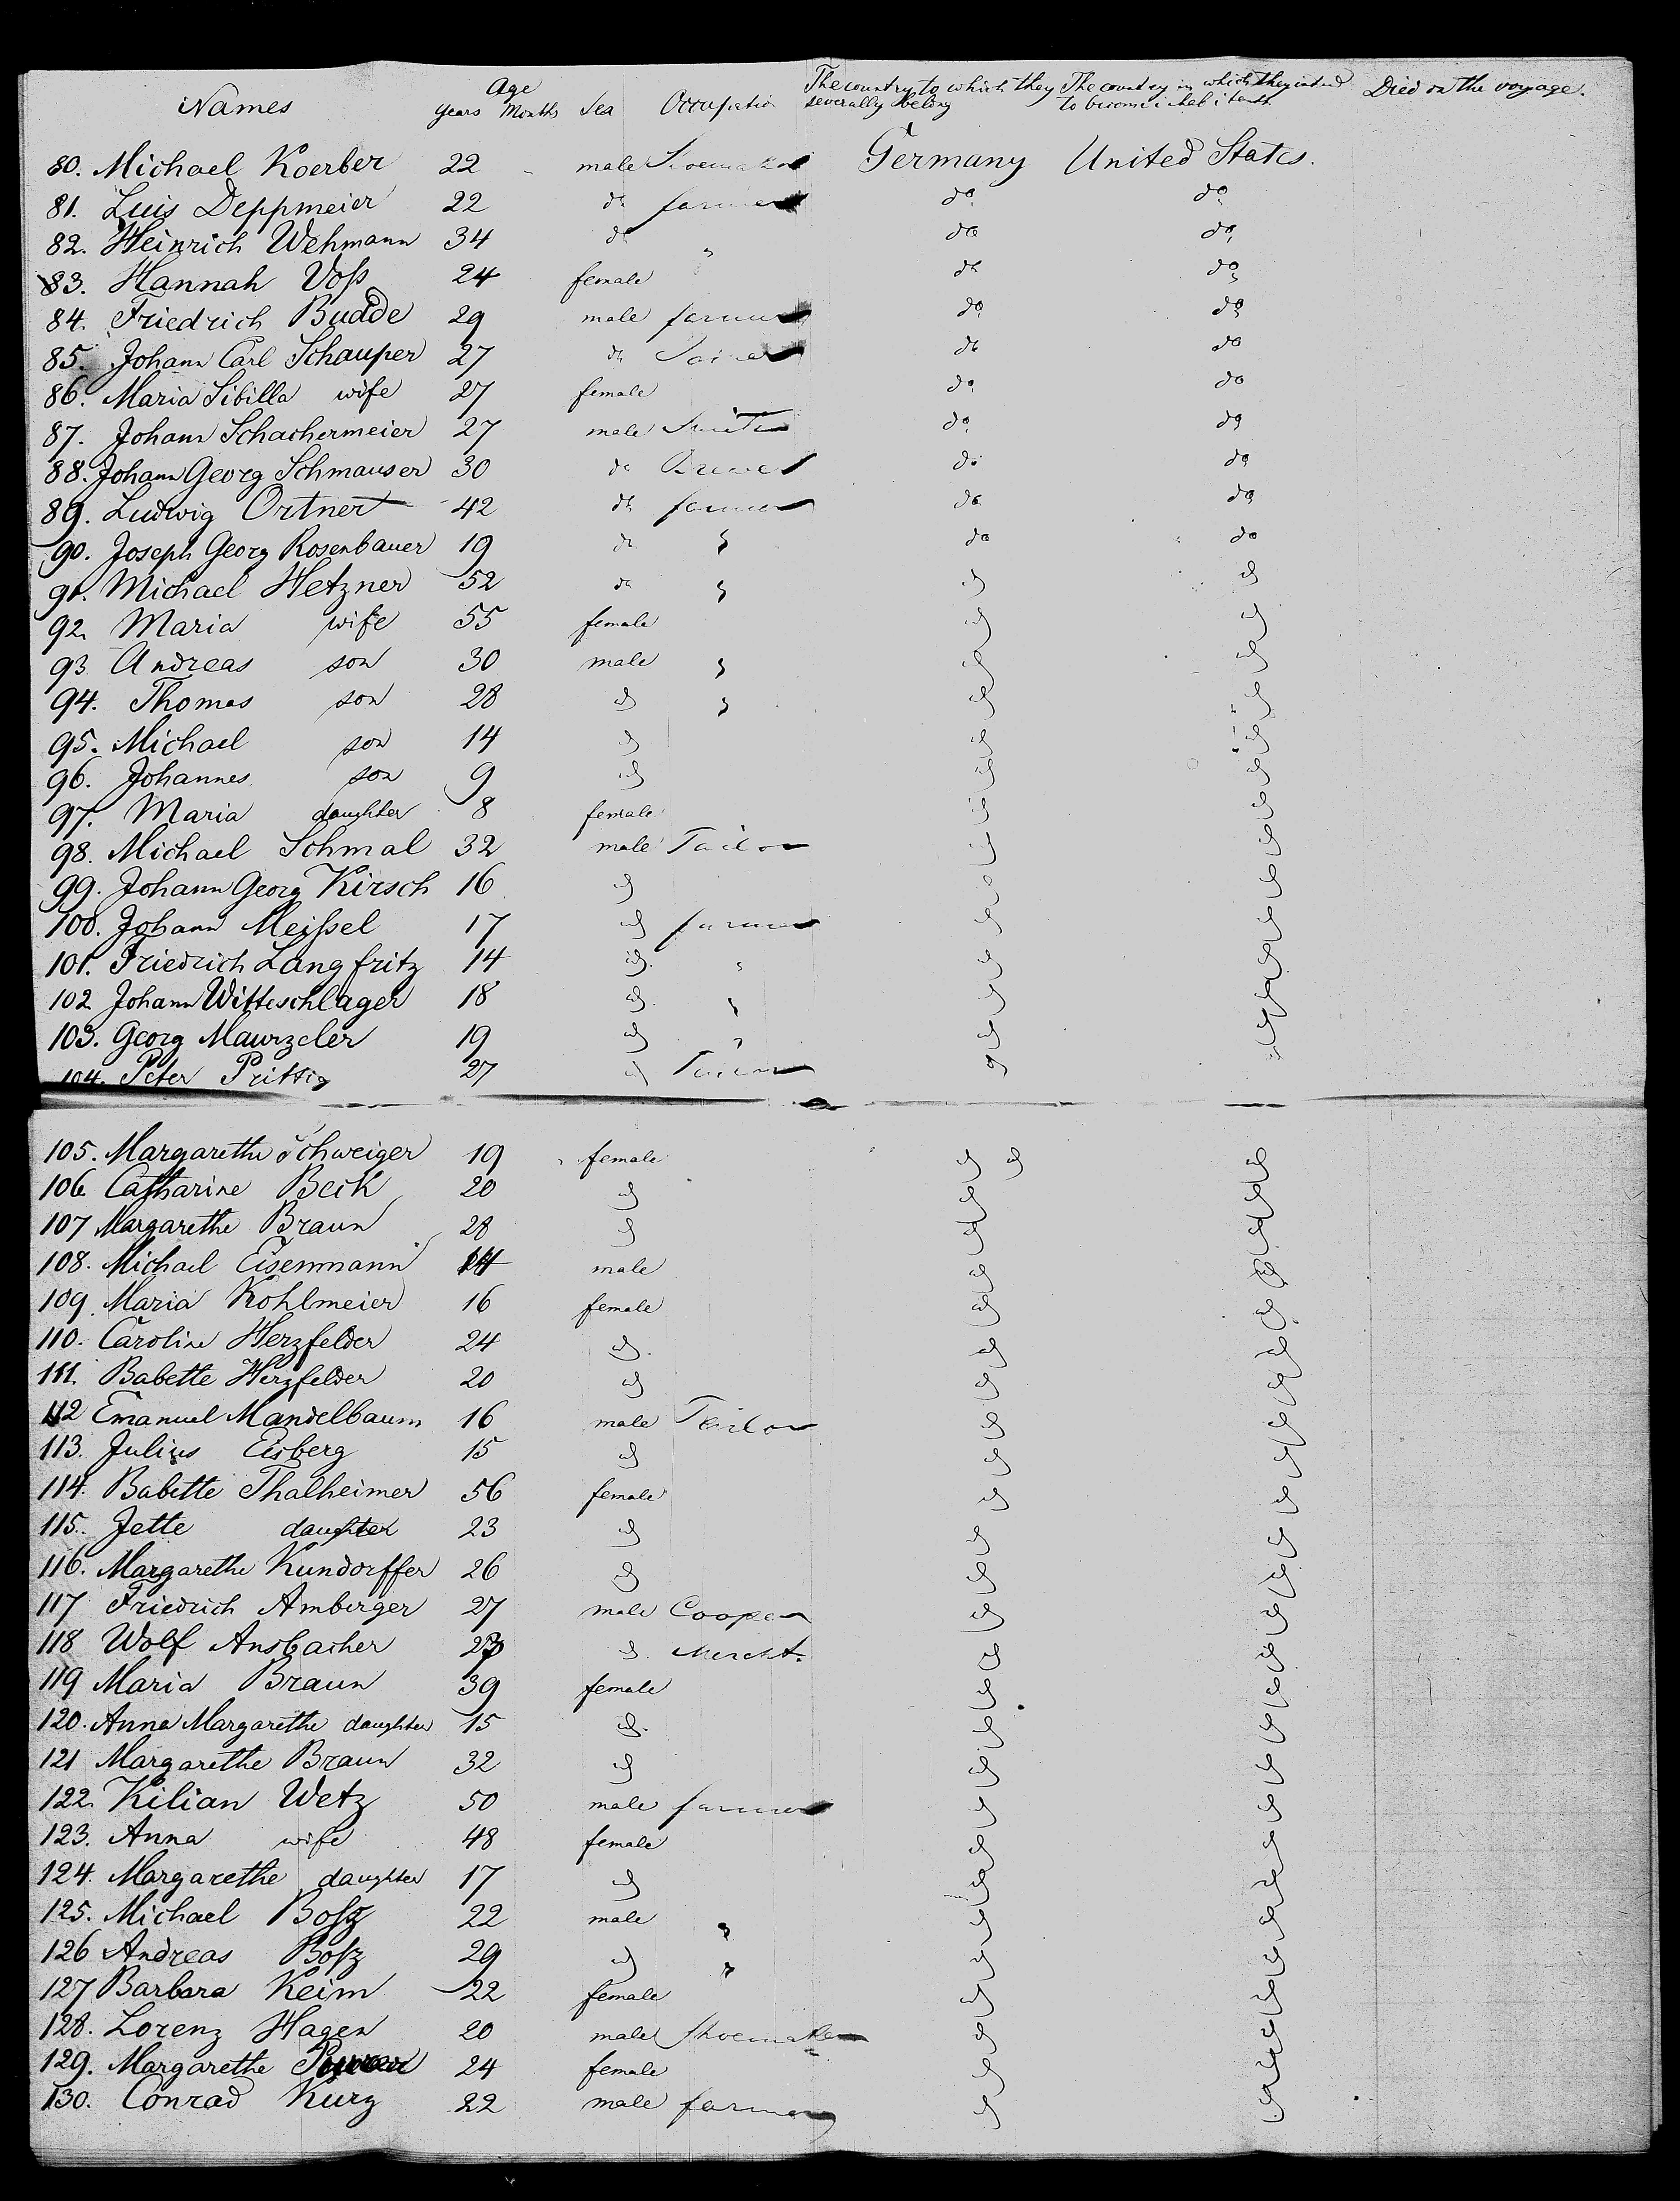 Names Age Years Months Sex Occupation The country to which they severally belong The country in which they intend to become inhabitants Died on the voyage.
80. Michael Koerber 22 male Shoemaker Germany United States.
81. Luis Deppmeier 22 do farmer do do
82. Heinrich Wehmann 34 do " do do
83. Hannah Voſs 24 female do do
84. Friedrich Budde 29 male farmer do do
85. Johann Carl Schauper 27 do do do
86. Maria Sibilla wife 27 female do do
87. Johann Schachermeier 27 male do do
88. Johann Georg Schmauser 30 do Brewer do do
89. Ludwig Ortner 42 do farmer do do
90. Joseph Georg Rosenbauer 19 do " do do
91. Michael Hetzner 52 do " do do
92. Maria wife 55 female do do
93 Andreas son 30 male " do do
94. Thomas son 28 do " do do
95. Michael son 14 do do do
96. Johannes son 9 do do do
97. Maria daughter 8 female do do
98. Michael Schmal 32 male Tailor do do
99. Johann Georg Kirsch 16 do do do
100. Johann Meiſsel 17 do farmer do do
101. Friedrich Langfritz 14 do " do do
102 Johann Witteschlager 18 do " do do
103. Georg Maurzeler 19 do " do do
104. Peter Prittig 27 do do do
105. Margarethe Schweiger 19 female do do do
106 Catharine Beck 20 do do do
107 Margarethe Braun 28 do do do
108. Michael Eisenmann male do do
109. Maria Kohlmeier 16 female do do
110. Caroline Herzfelder 24 do do do
111. Babette Herzfelder 20 do do do
112 Emanuel Mandelbaum 16 male Tailor do do
113. Julius Eisberg 15 do do do
114. Babette Thalheimer 56 female do do
115. Jette daughter 23 do do do
116. Margarethe Kundorffer 26 do do do
117 Friedrich Amberger 27 male Cooper do do
118 Wolf Ansbacher do Mercht. do do
119 Maria Braun 39 female do do
120. Anna Margarethe daughter 15 do do do
121 Margarethe Braun 32 do do do
122. Kilian Wetz 50 male farmer do do
123. Anna wife 48 female do do
124. Margarethe daughter 17 do do do
125. Michael Boſz 22 male " do do
126 Andreas Boſz 29 do " do do
127 Barbara Keim 22 female do do
128. Lorenz Hagen 20 male Shoemaker do do
129. Margarethe 24 female do do
130. Conrad Kurz 22 male farmer do do